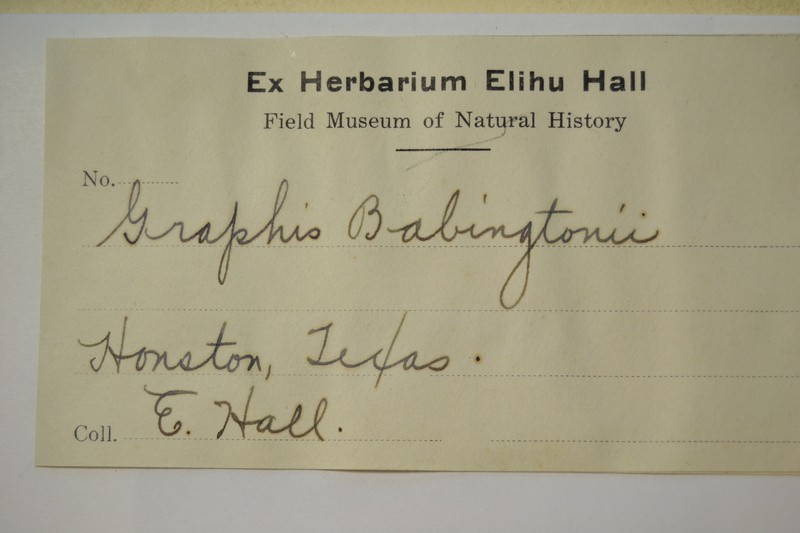 Ex Herbarium Elihu Hall
Field Museum of Natural History
No.
Graphis Babingtonii
Houston, Texas.
Coll. E. Hall.